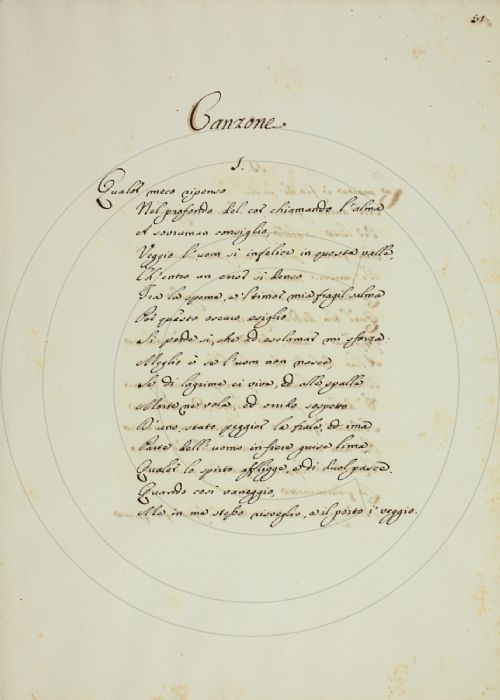 51.
Canzone.
1.
Qualor meco ripenso
Nel profondo del cor chiamando l'alma
A sovruman consiglio,
Veggio l'uom sì infelice in questa valle,
Ch'entro un error sì denso
Tra la speme, e 'l timor mia fragil salma
Per questo oscuro esiglio
Si perde sì, che ad esclamar mi sforza:
Meglio è se l'uom non nasce,
Se di lagrime ei vive, ed alle spalle
Morte ne vola, ed
D'uno stato peggior la fiale, ed ima
Parte dell'uomo in fiere guise lima,
Qualor lo spirto affligge, e di duol pasce.
Quando così vaneggio,
Me in me stesso risveglio, e il porto i' veggio.